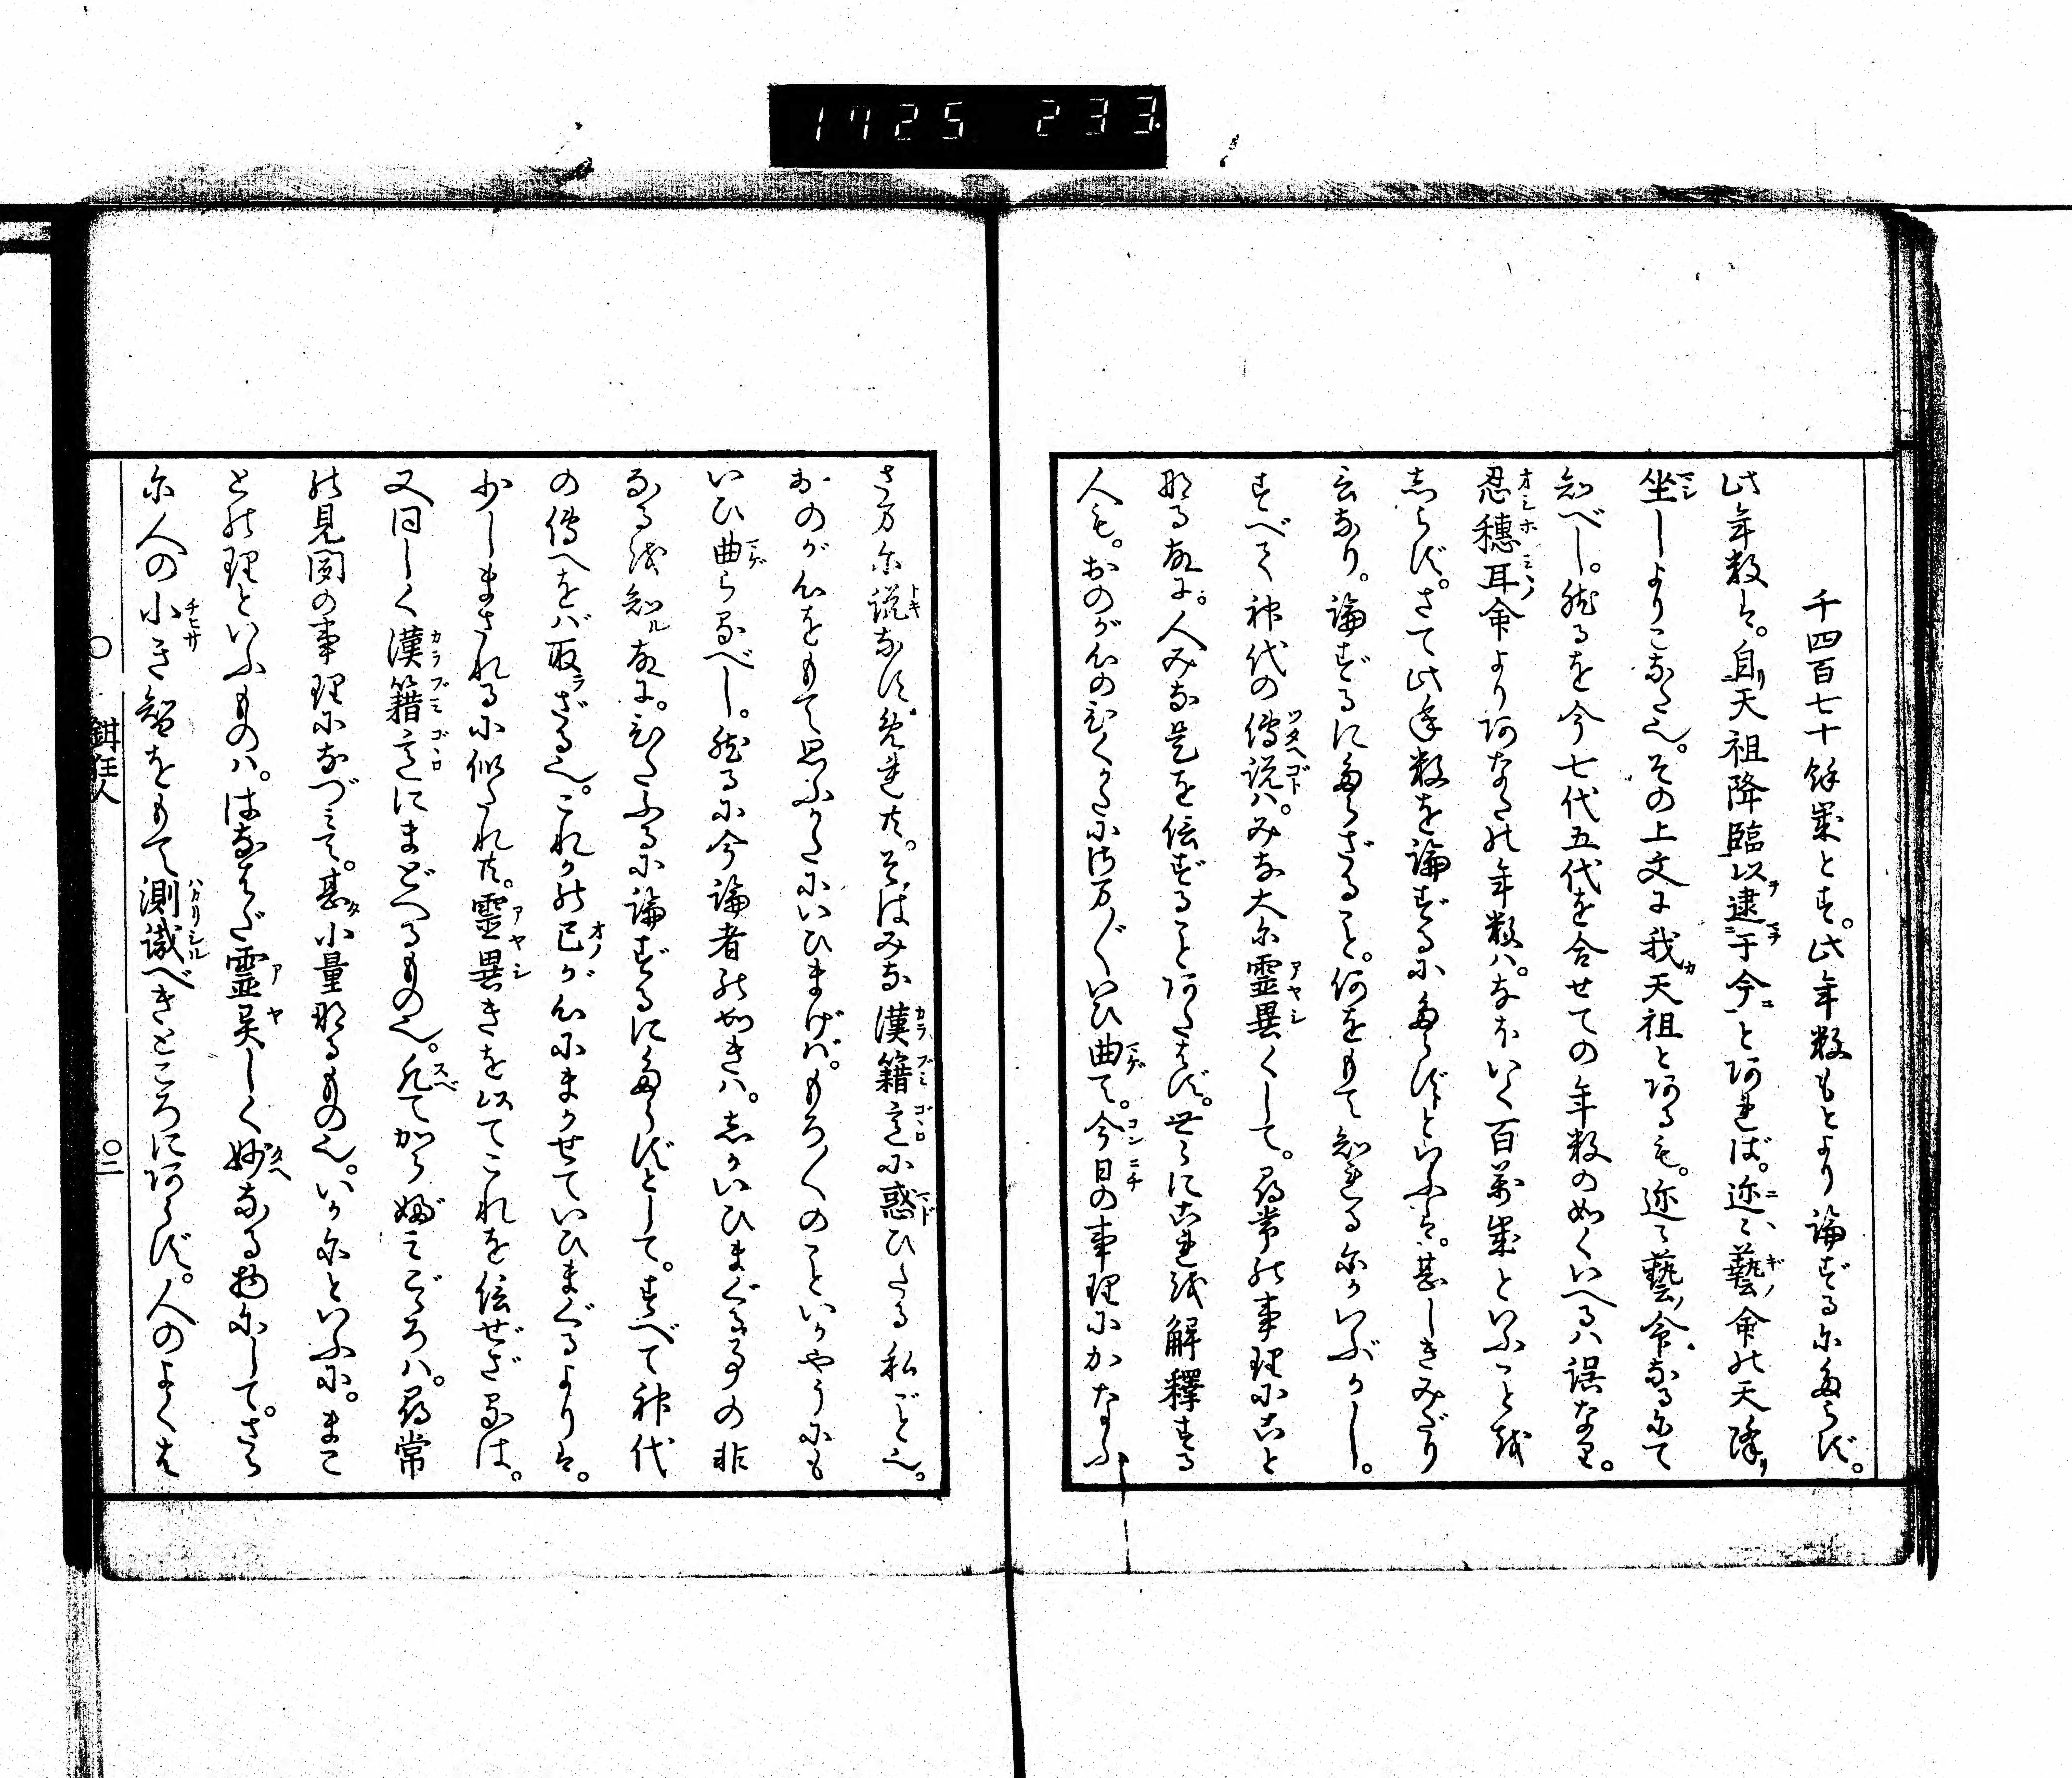 1725 233
千四百七十餘歳とす。此年数もとより論ずるにたらず。
此年数は。自天祖降臨以逮于今とあれば。迩々藝命の天降り
坐しよりこなた也。その上文に我天祖とあるも。迩々藝命なるにて
知べし。然るを今七代五代を合せての年数の如くいへるハ誤なり。
忍穂耳命よりあなたの年数ハ。なほいく百萬歳といふことを
しらず。さて此年数を論ずるにたらずといふは。甚しきみだり
言なり。論ずるにたらざること。何をもて知れるにかいぶかし。
すべて神代の傳説ハ。みな大に霊異くして。尋常の事理にこと
なる故に。人みな是を信ずることあたはず。世々にこれを解釋する
人も。おのが心のひくかたにさま〴〵いひ曲て。今日の事理にかなふ
さまに説なすめれ共。そはみな漢籍意に惑ひたる私ごと也。
おのが心をもて思ふかたにいひまげバ。もろ〳〵のこといかやうにも
いひ曲らるべし。然るに今論者の如きハ。しかいひまぐる事の非
なるを知ル故に。ひたふるに論ずるにたらずとして。すべて神代
の傳へをバ取ラざる也。これかの己が心にまかせていひまぐるよりは。
少しまされるに似たれ共。霊異きを以てこれを信ぜざるは。
又同しく漢籍意にまどへるもの也。凡てから婦みごゝろハ。尋常
の見聞の事理になづみて。甚タ小量なるもの也。いかにといふに。まこ
との理といふものハ。はなはだ霊異しく妙なる物にして。さら
に人の小き智をもて測識べきところにあらず。人のよくは
〇 鉗狂人 〇二